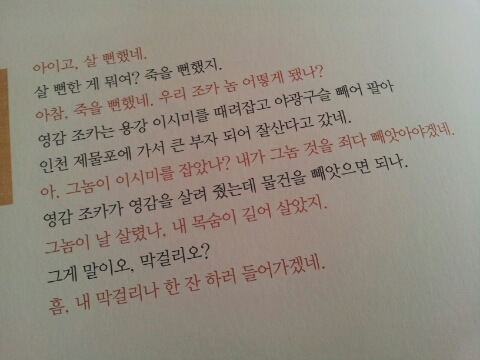 아이고, 살 뻔했네.
살 뻔한 게 뭐여? 죽을 뻔했지.
아참, 죽을 뻔했네. 우리 조카 놈 어떻게 됐나?
영감 조카는 용강 이시미를 때려잡고 야광구슬 빼어 팔아
인천 제물포에 가서 큰 부자 되어 잘산다고 갔네.
아, 그놈이 이시미를 잡았나? 내가 그놈 것을 죄다 빼앗아야겠네.
영감 조카가 영감을 살려 줬는데 물건을 빼앗으면 되나.
그놈이 날 살렸나, 내 목숨이 길어 살았지.
그게 말이오, 막걸리오?
흠, 내 막걸리나 한 잔 하러 들어가겠네.